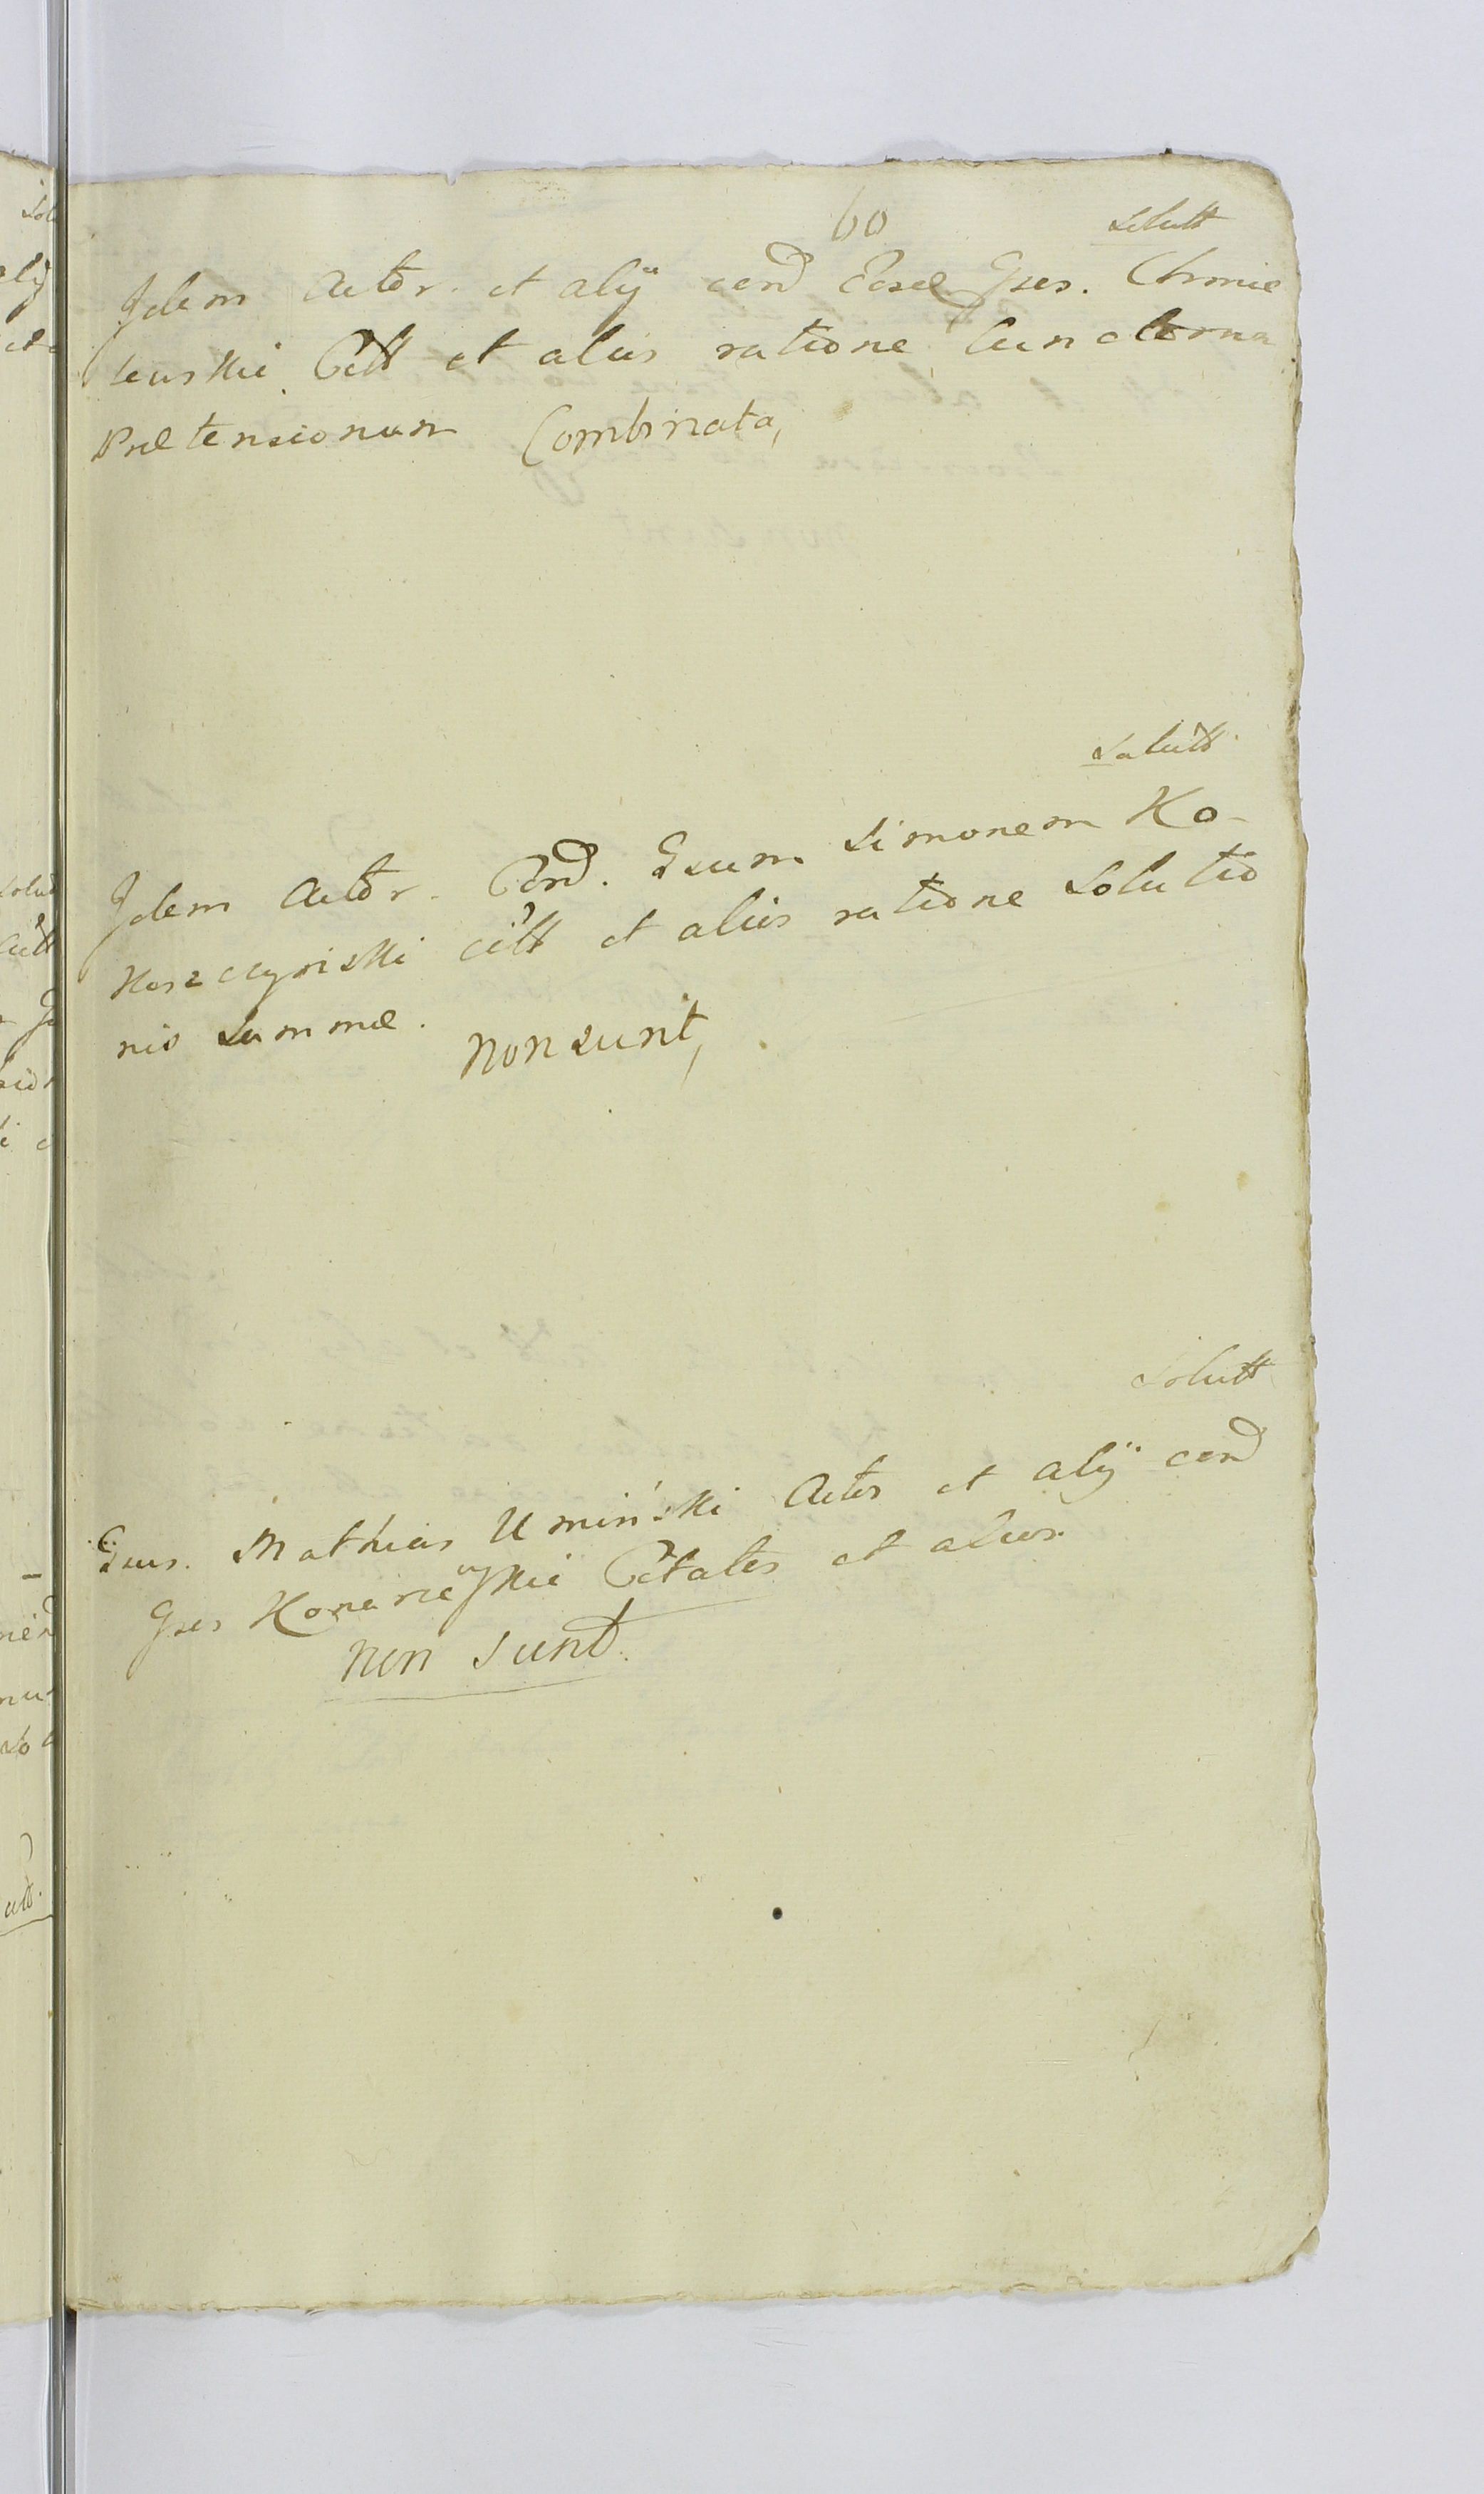 60
Solutt
Idem Actor. et alij con͠d Eosd Gses. Chmie
lewskie Citt et alios ratione cunctorum
Prætensionum Combinata,
Solutt
Idem Actor. Con͠d. Gsum Simonem Ko-
koszczyński citt et alios ratione Solutio
nis Summæ.
non sunt,
Solutt
Gsus. Mathias Umiński Actor et alij con͠d
Gses Konarzewskie Citatos et alios.
non sunt.